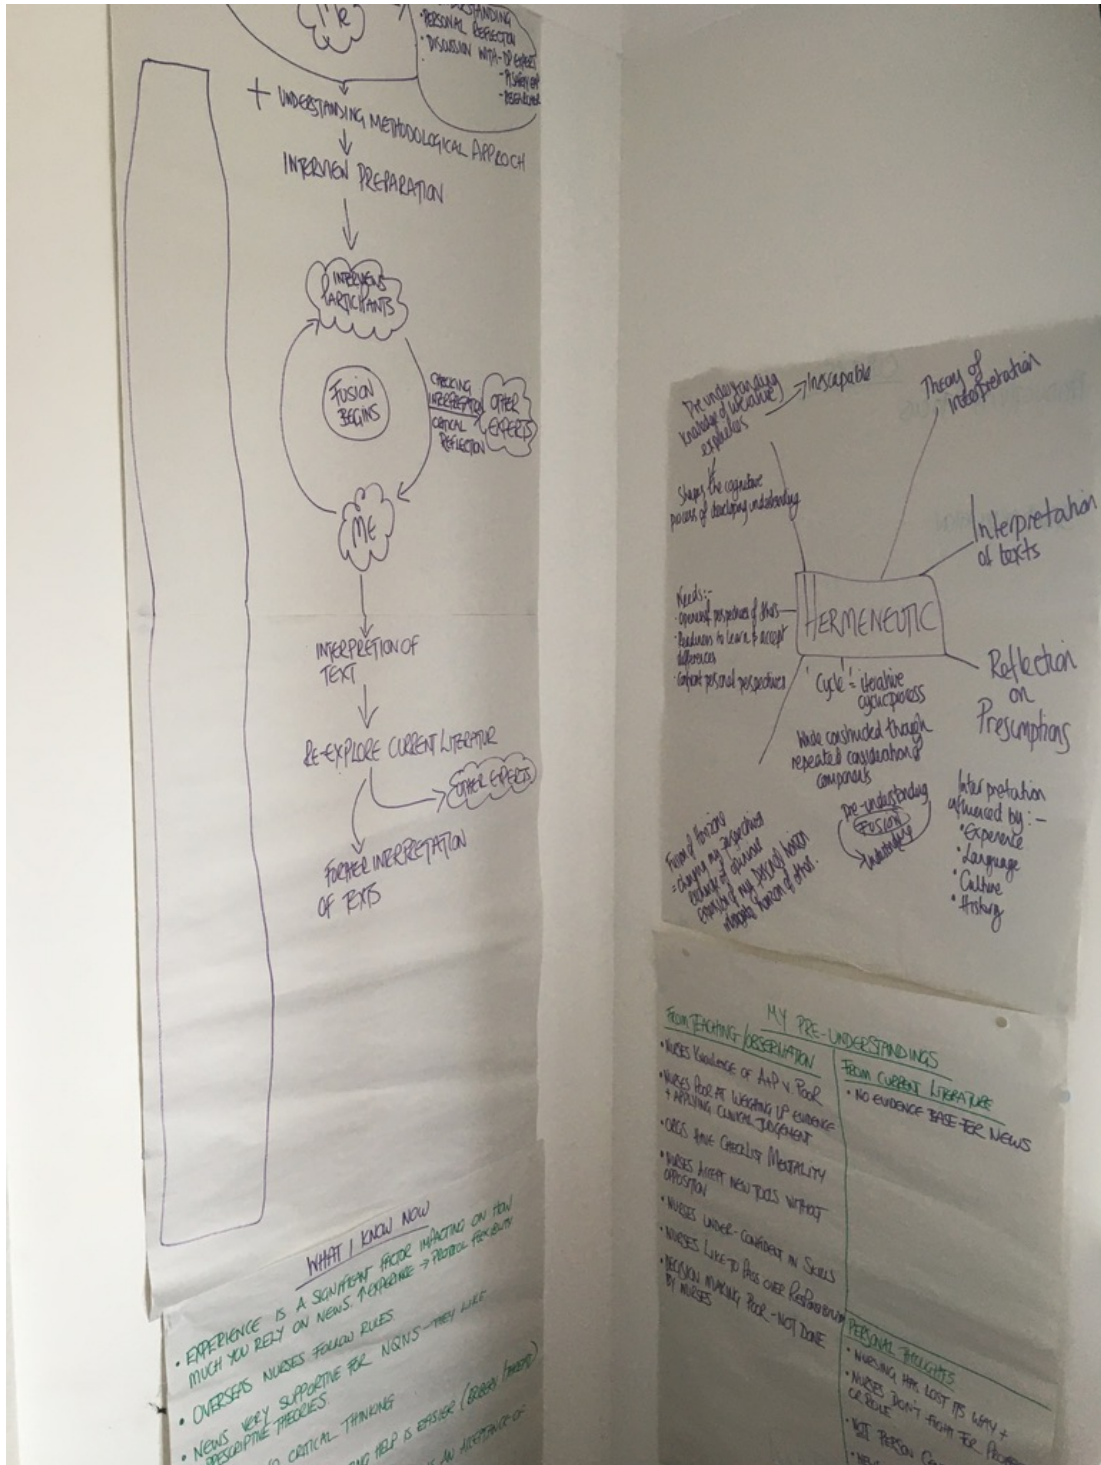 Me
PERSONAL REFLECTION
• DISCUSSION WITH - OP EXPERT
+ UNDERSTANDING METHODOLOGICAL APPROCH
INTERVIEW PREPARATION
INTERVIEWS
PARTICIPANTS
FUSION
BEGINS
CHECKING
INTERPRETATION
CRITICAL
REFLECTION
OTHER
EXPERTS
ME
INTERPRETION OF
TEXT
RE-EXPLORE CURRENT LITERATUR
OTHER EXPERTS
FURTHER INTERPRETATION
OF TEXTS
WHAT I KNOW NOW
• EXPERIENCE IS A SIGNIFICANT FACTOR IMPACTING ON HOW
MUCH YOU RELY ON NEWS. ↑EXPERIENCE → PROTOCOL FLEXIBILITY
• OVERSEAS NURSES FOLLOW RULES.
• NEWS VERY SUPPORTIVE FOR NQNS - THEY LIKE
PRESCRIPTIVE THEORIES.
CRITICAL THINKING
HELP IS EASIER
AN ACCEPTANCE OF
Pre understanding
knowledge of
→ Inescapable
Shapes the cognitive
process of developing understanding
Theory of
interpretation
Interpretation
of texts
HERMENEUTIC
Needs:-
• Openness of perspectives of others
• Readiness to learn & accept
differences
• Confront personal perspectives
'Cycle' = iterative
cyclic process
Whole constructed through
repeated consideration of
components
Pre-understanding
FUSION
Understanding
Reflection
on
Presumptions
Interpretation
influenced by:-
• Experience
• Language
• Culture
• History
Fusion of Horizons
= changing my perspectives
exchange of opinions
expansion of my personal horizon
integrate horizon of other.
MY PRE-UNDERSTANDINGS
FROM TEACHING/OBSERVATION
• NURSES KNOWLEDGE OF A+P V. POOR
• NURSES POOR AT WEIGHING UP EVIDENCE
+ APPLYING CLINICAL JUDGEMENT
• ORGS HAVE CHECKLIST MENTALITY
• NURSES ACCEPT NEW TOOLS WITHOUT
OPPOSITION
• NURSES UNDER-CONFIDENT IN SKILLS
• NURSES LIKE TO PASS OVER RESPONSIBILITY
• DECISION MAKING POOR - NOT DONE
BY NURSES
FROM CURRENT LITERATURE
• NO EVIDENCE BASE FOR NEWS
PERSONAL THOUGHTS
• NURSING HAS LOST ITS WAY +
OR ROLE
• NURSES DON'T FIGHT FOR
• NOT PERSON